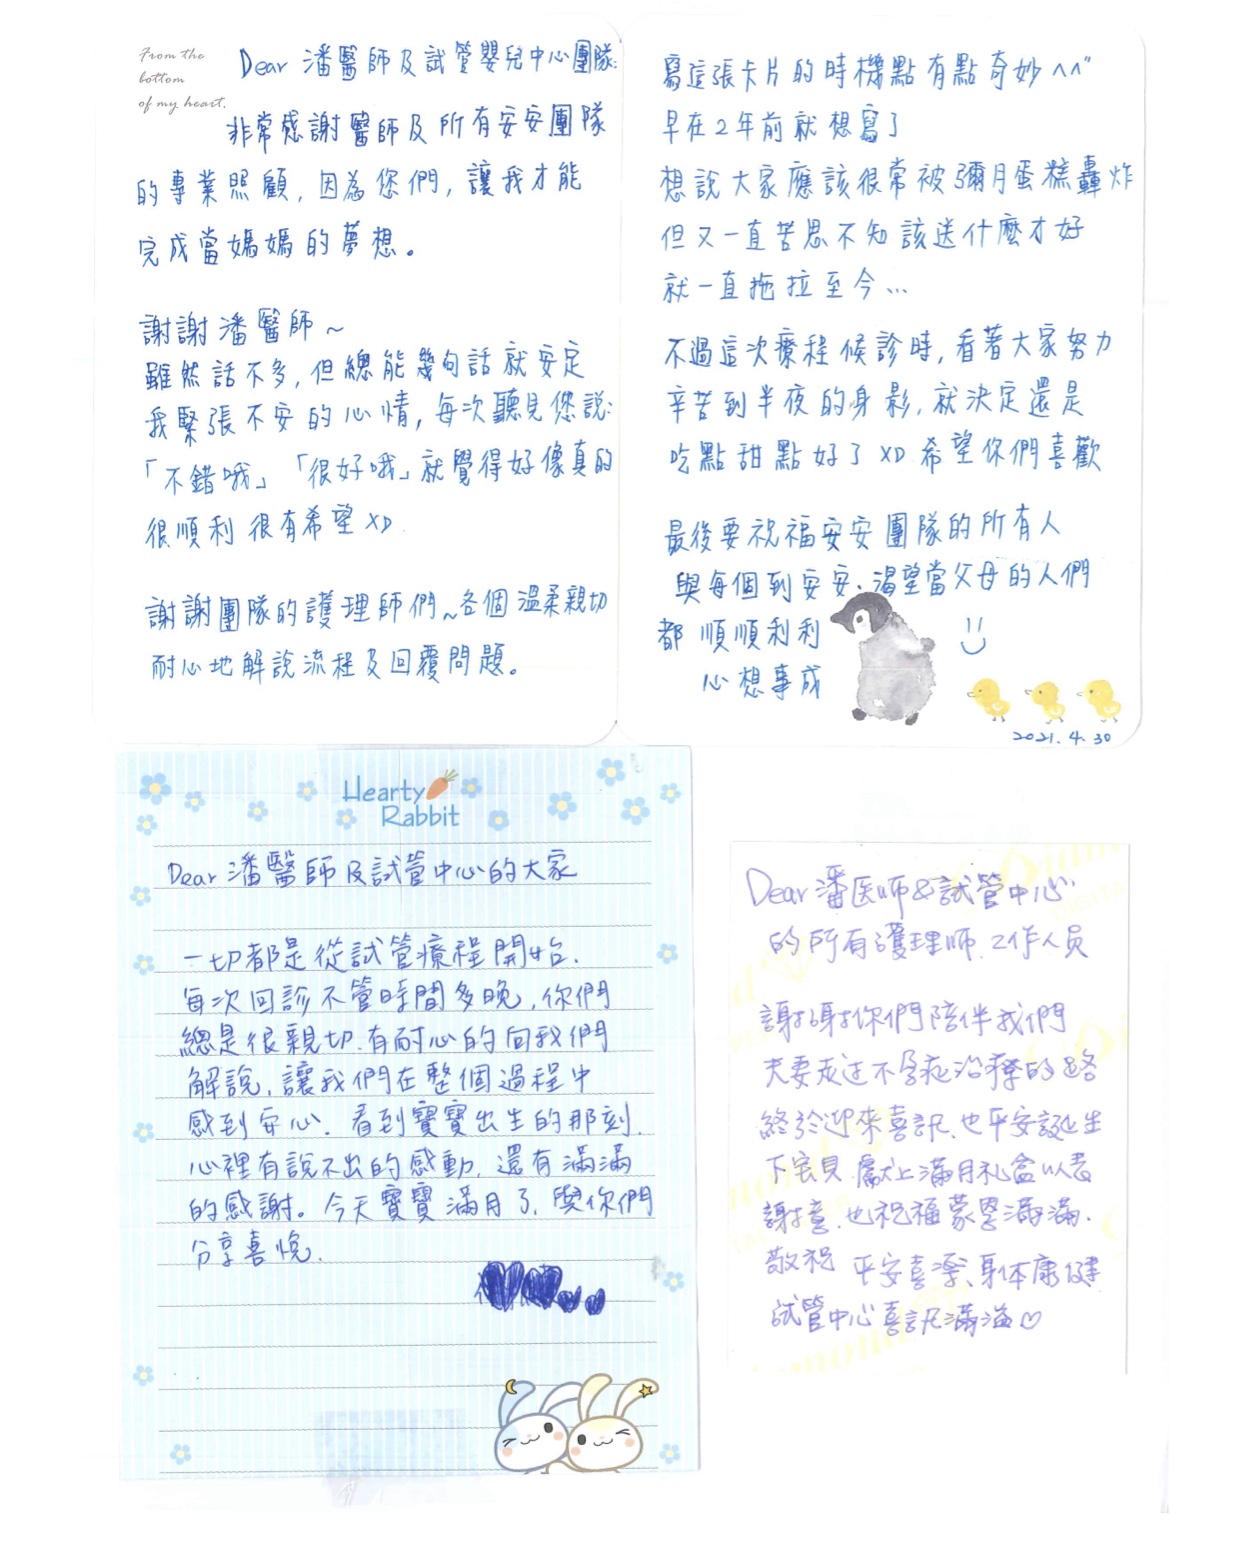 From the
bottom
of my heart.
Dear 潘醫師及試管嬰兒中心團隊:
非常感謝醫師及所有安安團隊
的專業照顧，因為您們，讓我才能
完成當媽媽的夢想。
謝謝潘醫師~
雖然話不多，但總能幾句話就安定
我緊張不安的心情，每次聽見您說:
「不錯哦」「很好哦」就覺得好像真的
很順利很有希望XD
謝謝團隊的護理師們~各個溫柔親切
耐心地解說流程及回覆問題。
寫這張卡片的時機點有點奇妙^^"
早在2年前就想寫了
想說大家應該很常被彌月蛋糕轟炸
但又一直苦思不知該送什麼才好
就一直拖拉至今...
不過這次療程候診時，看著大家努力
辛苦到半夜的身影，就決定還是
吃點甜點好了XD 希望你們喜歡
最後要祝福安安團隊的所有人
與每個到安安、渴望當父母的人們
都順順利利
心想事成
2021.4.30
Hearty
Rabbit
Dear 潘醫師及試管中心的大家
一切都是從試管療程開始.
每次回診不管時間多晚，你們
總是很親切、有耐心的向我們
解說，讓我們在整個過程中
感到安心. 看到寶寶出生的那刻，
心裡有說不出的感動，還有滿滿
的感謝。今天寶寶滿月了，與你們
分享喜悅.
Dear 潘医师&試管中心
的所有護理師、工作人员
謝謝你們陪伴我們
夫妻走过不孕症治療的路
終於迎來喜訊、也平安誕生
下宝貝 獻上滿月礼盒以表
謝意，也祝福蒙恩滿滿.
敬祝 平安喜樂、身体康健
試管中心喜訊滿溢♡